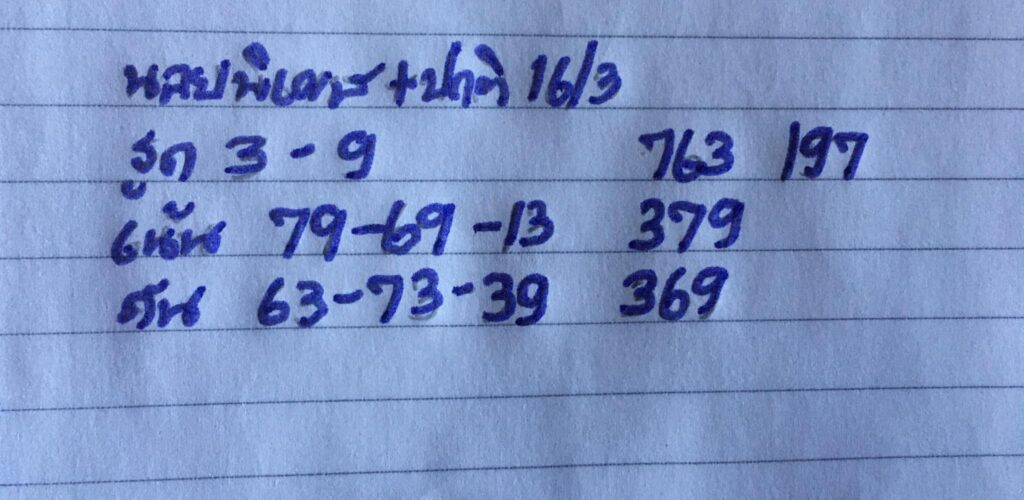 นอยพิเศษ + ปกติ 16/3
รูด 3 - 9 763 197
เน้น 79 - 69 - 13 379
63 - 73 - 39 369